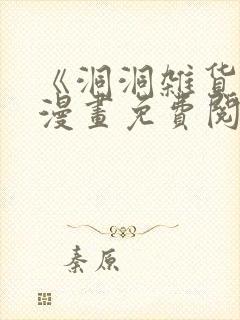 《洞洞雑货
漫畫免費閱
秦原